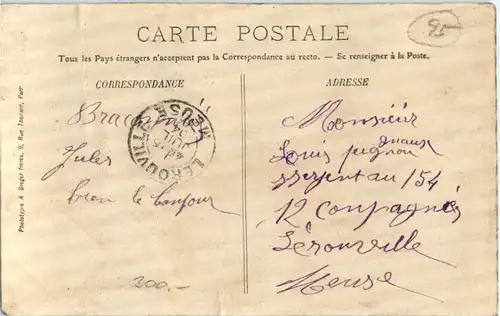 CARTE POSTALE
95
Tous les Pays étrangers n'acceptent pas la Correspondance au recto. — Se renseigner à la Poste.
CORRESPONDANCE
ADRESSE
Jules
bien le bonjour
Monsieur
Louis
sergent au 154
12 Compagnie
Lérouville
Meuse
LEROUVILLE
MEUSE
300.-
Phototype A Breger frères, 9, Rue